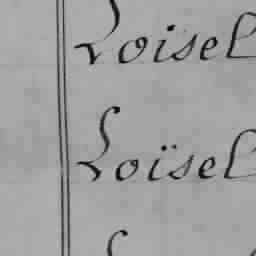 Loisel
Loïsel